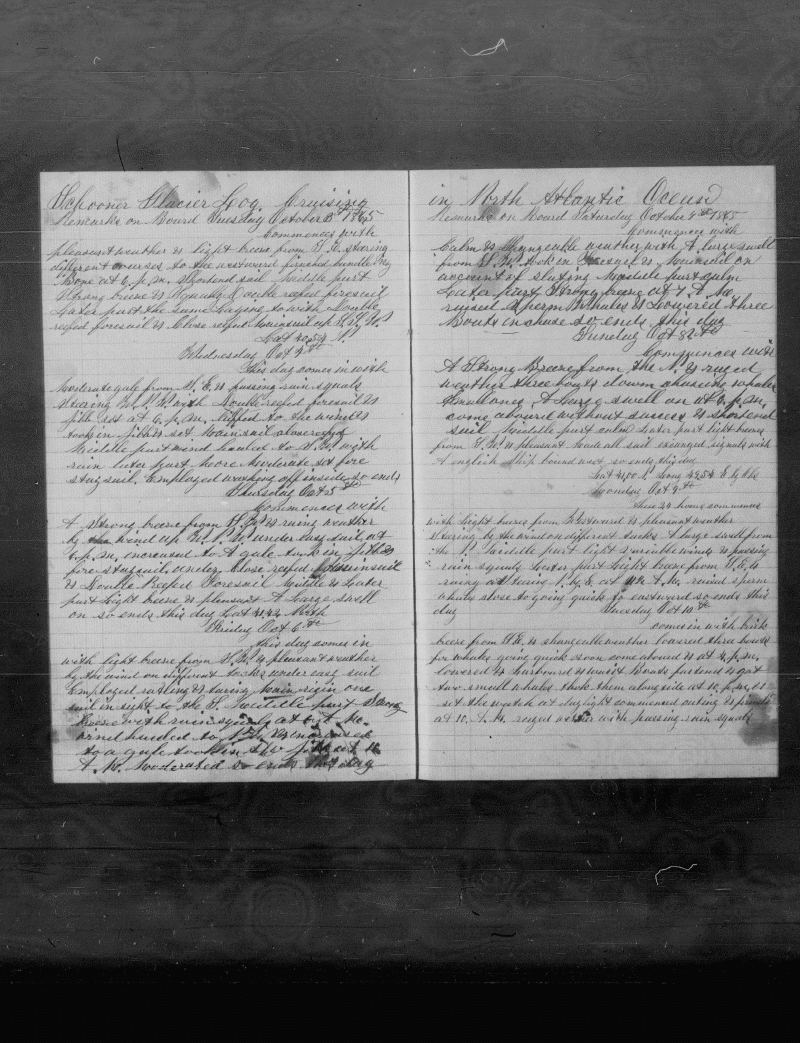 Schooner Glacier Log Cruising
Remarks on Board Tuesday October 3d 1865
Commences with
pleasant weather & light breeze from S. E. stering
different courses to the westward finished bundle
Bone at 6, p.m. shortend sail Middle part
Strong breeze & squaly Double reefed foresail
Later part the same Layong to with Double
reefed foresail & Close refed Mainsail
Lat 40.54 N.
Wednesday Oct
This day comes in with
Moderate gale from & passing rain squals
Staring with Double reefed foresail &
jibb set at 6, p.m. to the wind &
took in jibb & set Mainsail close reefed
Middle part wind hauled to with
rain later part More Moderate set fore
staysail. Employed washing off inside so ends
Thursday Oct 5th
Commences with
A strong breeze from & rainy weather
by the wind up under easy sail at
6, p.m. increased to A gale took in jibb &
fore staysail under Close reefed Mainsail
& Double Reefed Foresail Middle & Later
part light breeze & pleasant A Large swell
on so ends this day Lat 41,42 North
Friday Oct 6th
this day comes in
with light breeze from & pleasant weather
by the wind on different tacks under easy sail
Employed main rigin one
sail in sight to the S. Middle part Strong
breeze with rain squals at
wind hauled to increased
to a gale took in the jibb at 11
A. M. Moderated so ends this day
in North Atlantic Ocean
Remarks on Board Saturday October 7th 1865
Commences with
Calm & changeable weather with A large swell
from took in Foresail & Mainsail on
account of slating Middle part calm
Later part Strong breeze at 7. A. M.
raised Sperm Whales & Lowered three
Boats in chase so ends this day
Sunday Oct 8th
Commences with
A Strong Breeze from the N. & ruged
weather three boats down chaseing whales
A large swell on at 6, p.m.
come aboard without success & shortend
sail Middle part calm Later part light breeze
from & pleasant Made all sail exchanged signals with
A english Ship bound west so ends this day
Lat 41,00 N. Long 49,54
Monday Oct 9th
These 24 hours commences
with light breeze from Westward & pleasant weather
staring by the wind on different tacks A large swell from
the N. Middle part light variable winds & passing
rain squals Later part Light breeze from S.E. &
rainy staring N. by E. at A. M. raised sperm
whales close to going quick to eastward so ends this
day
Tuesday Oct 10th
comes in with brisk
breeze from S.E. & changeable weather lowered three boats
for whales going quick soon come aboard & at 4, p.m,
lowered & Larboard & waist Boats fastened & got
two small whales took them along side at 10, p.m,
set the watch at daylight commenced cuting &
at 10, A. M. with passing rain squals